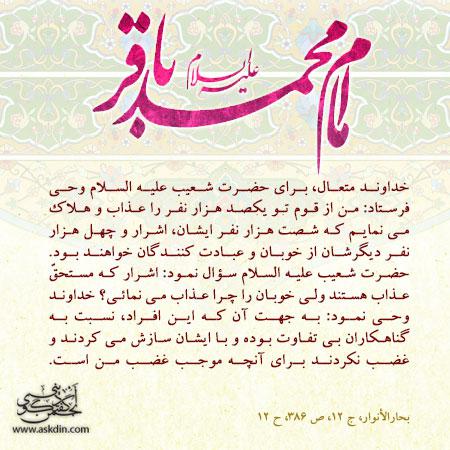 امام محمد باقر علیه السلام
خداوند متعال، برای حضرت شعیب علیه السلام وحی
فرستاد: من از قوم تو یکصد هزار نفر را عذاب و هلاک
می نمایم که شصت هزار نفر ایشان، اشرار و چهل هزار
نفر دیگرشان از خوبان و عبادت کنندگان خواهند بود.
حضرت شعیب علیه السلام سؤال نمود: اشرار که مستحقّ
عذاب هستند ولی خوبان را چرا عذاب می نمائی؟ خداوند
وحی نمود: به جهت آن که این افراد، نسبت به
گناهکاران بی تفاوت بوده و با ایشان سازش می کردند و
غضب نکردند برای آنچه موجب غضب من است.
بحارالأنوار، ج ۱۲، ص ۳۸۶، ح ۱۲
www.askdin.com